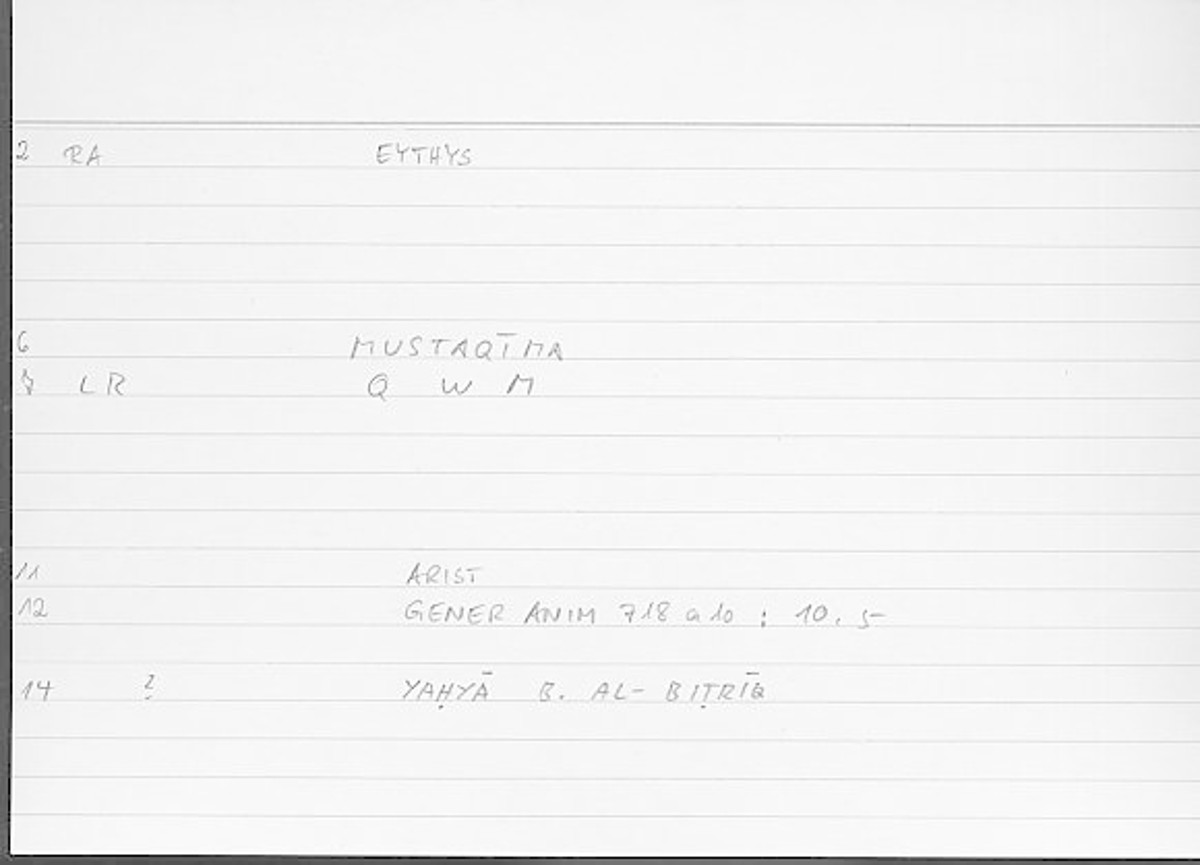 2 RA EYTHYS
6 MUSTAQĪMA
7 LR Q W M
11 ARIST
12 GENER ANIM 718 a 10 : 10.5
14 ? YAḤYĀ B. AL-BIṬRĪQ